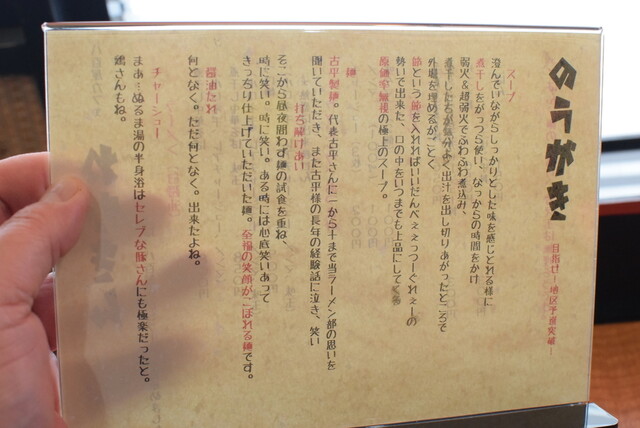 のうがき
目指せ!地区予選突破!
スープ
澄んでいながらしっかりとした味を感じとれる様に
煮干しをがっつら使い、なっからの時間をかけ
弱火&超弱火でふわふわ煮込み、
煮干したちが気分よく出汁を出し切りあがったところで
外堀を埋めるがごとく、
節という節を入れればいいだんべぇぇっつーぐれぇーの
勢いで出来た、口の中をいつまでも上品にしてくる
原価率無視の極上のスープ。
麺
古平製麺。代表古平さんに一から十まで当ラーメン部の思いを
聞いていただき、また古平様の長年の経験話に泣き、笑い
打ち解けあい
そこから昼夜問わず麺の試食を重ね、
時に笑い。時に笑い。ある時には心底笑いあって
きっちり仕上げていただいた麺。至福の笑顔がこぼれる麺です。
何となく。ただ何となく。出来たよね。
チャーシュー
まあ…ぬるま湯の半身浴はセレブな豚さんにも極楽だったと。
鶏さんもね。